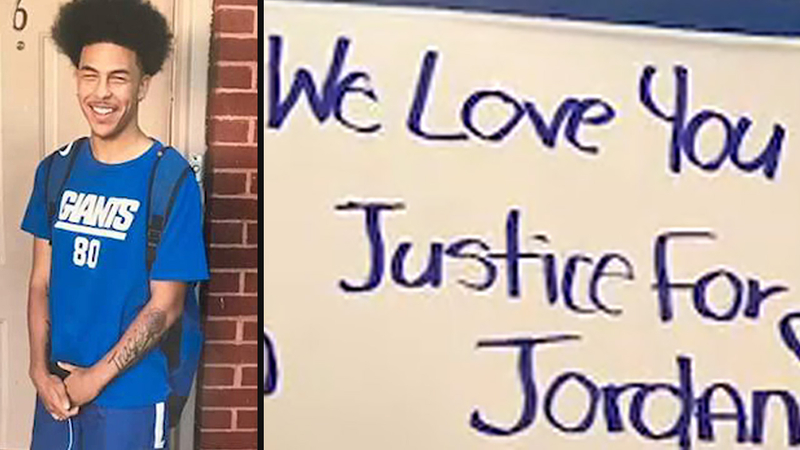 6
GIANTS
80
We Love You
Justice For
Jordan